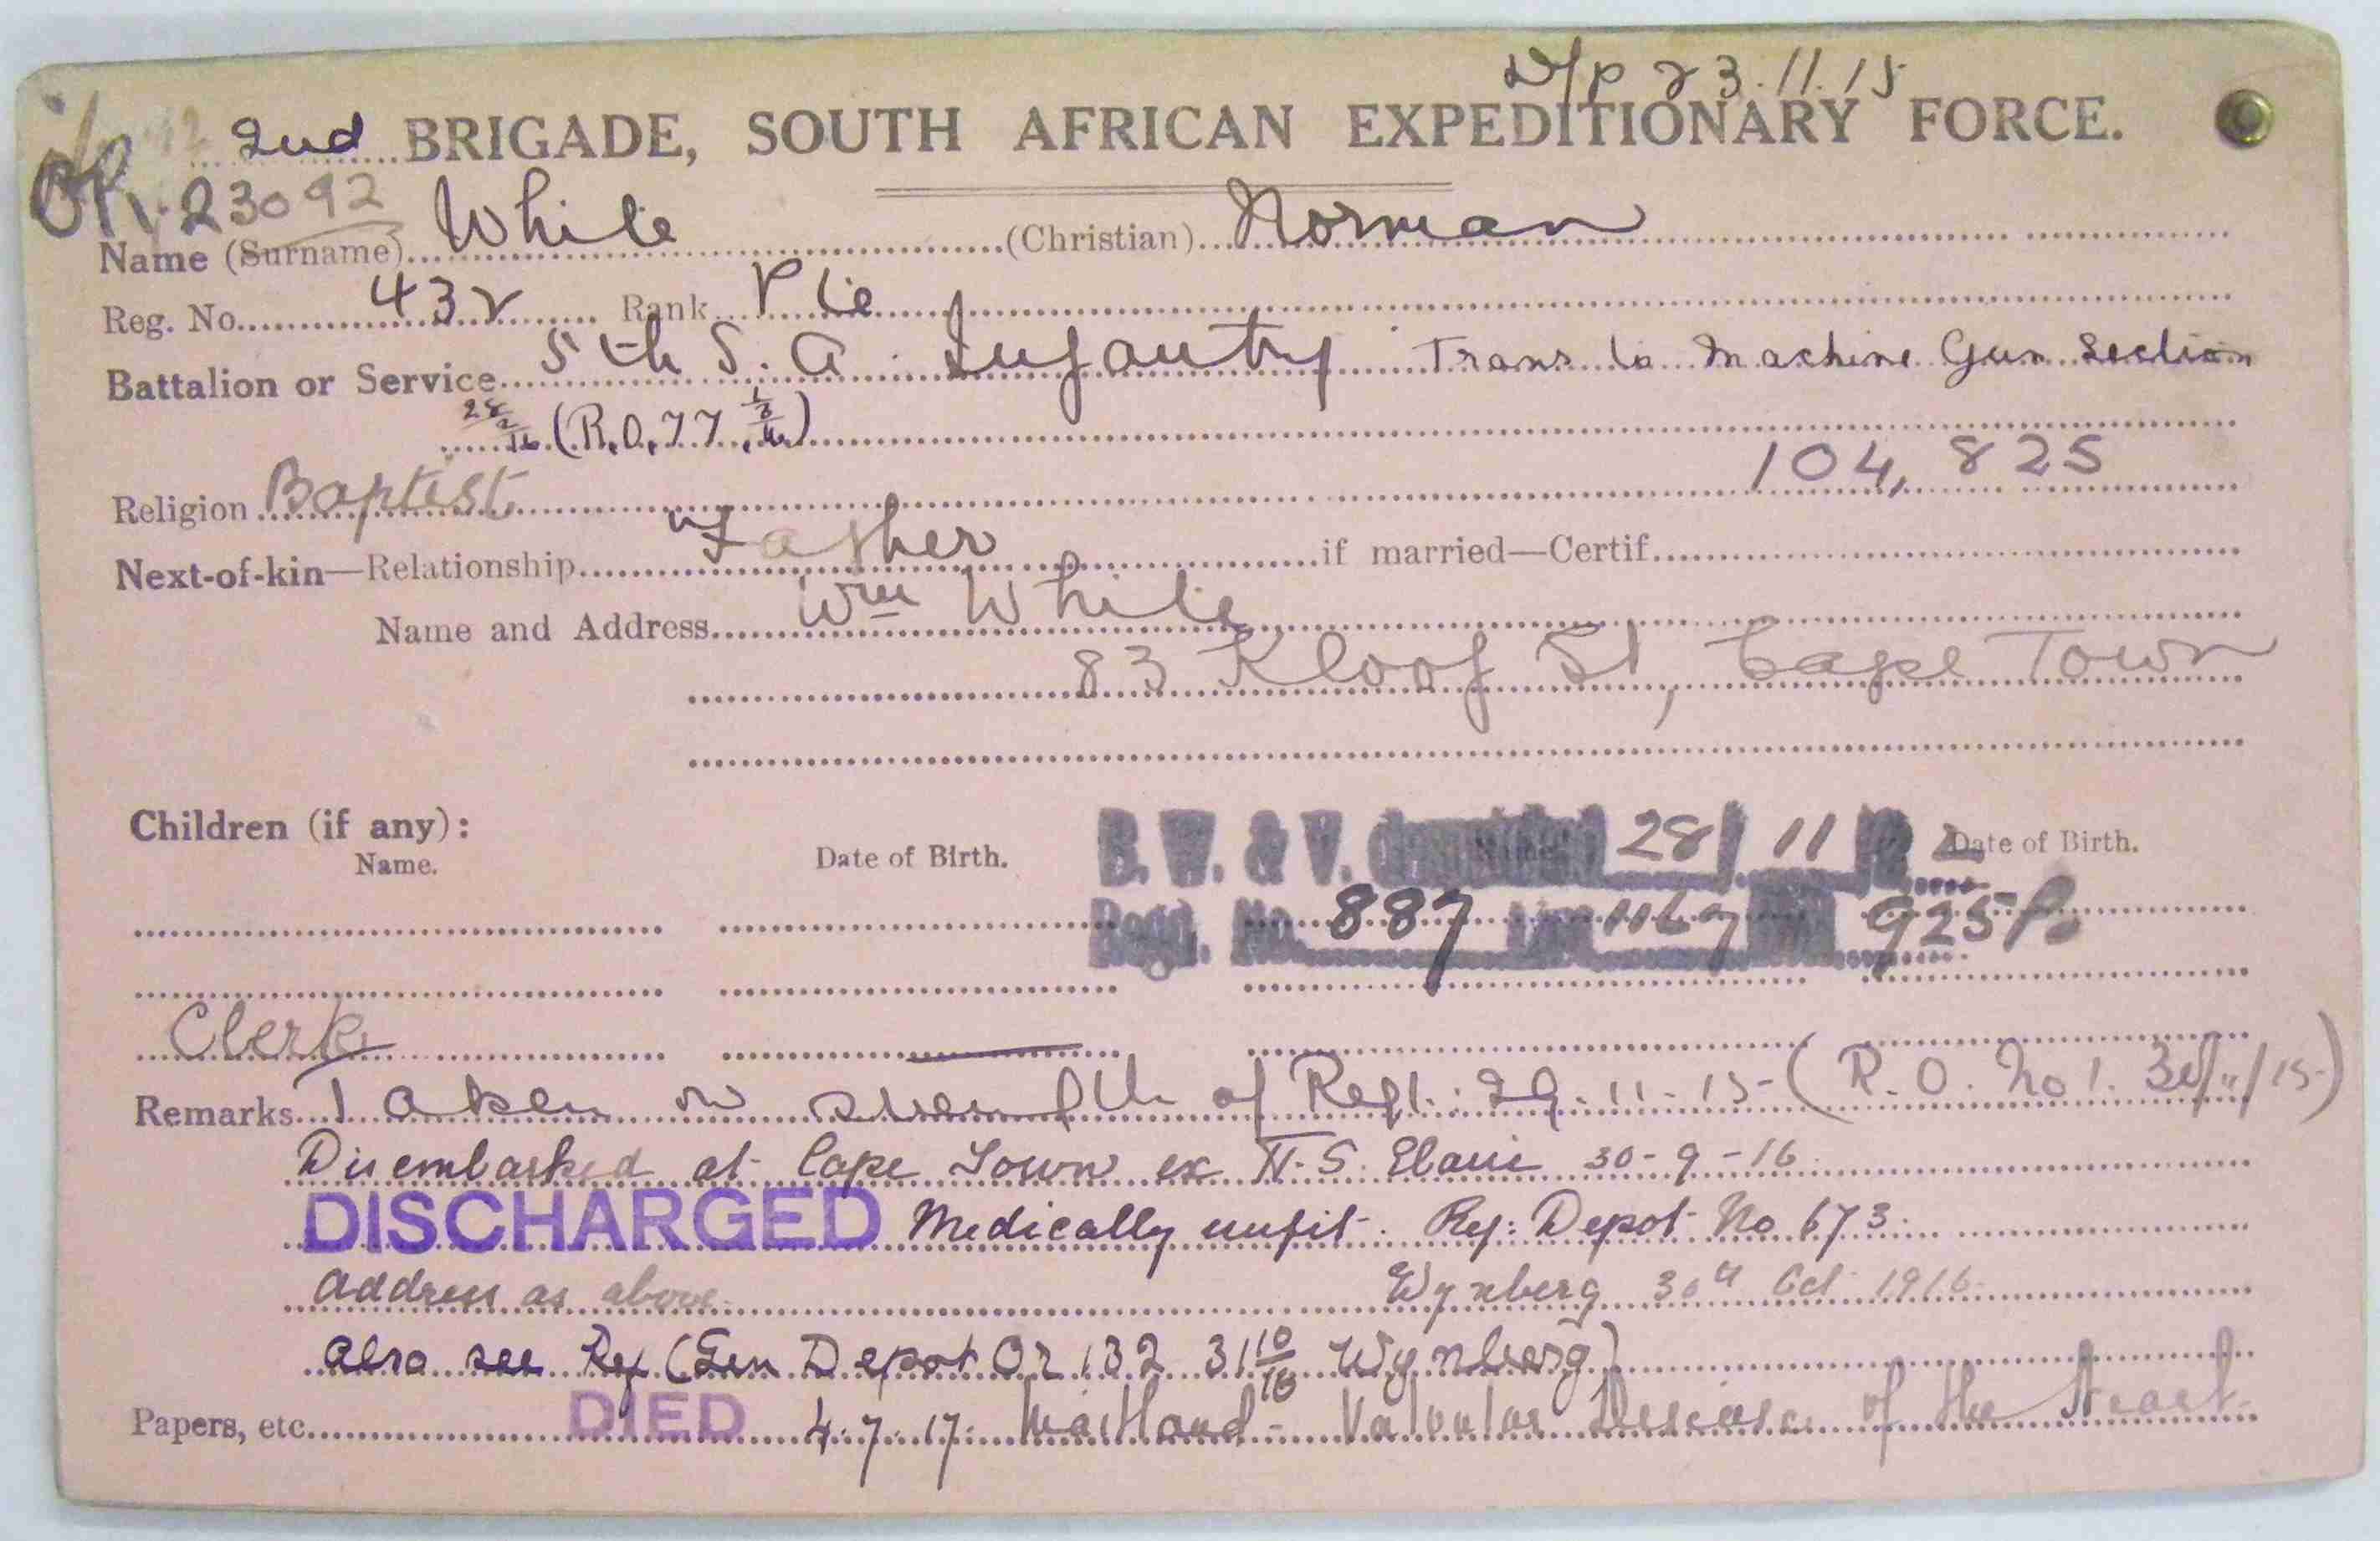 D/p 23.11.15
2nd BRIGADE, SOUTH AFRICAN EXPEDITIONARY FORCE.
OR. 23092
Name (Surname) White (Christian) Norman
Reg. No. 432 Rank Pte
Battalion or Service 5th S. A. Infantry Trans to Machine Gun Section
28/2/16 (R.O. 77 1/3/16)
Religion Baptist 104,825
Next-of-kin—Relationship Father if married—Certif.
Name and Address Wm White
83 Kloof St, Cape Town
Children (if any):
Name. Date of Birth. B. W. & V. 28/11 Date of Birth.
Regd. No. 887 1167 925 P
Clerk
Remarks Taken on strength of Regt. 29.11.15 (R.O. No 1. 30/11/15)
Disembarked at Cape Town ex H.S. Ebani 30-9-16
DISCHARGED Medically unfit. Ref: Depot No 673.
Address as above. Wynberg 30th Oct 1916
also see Ref (Gen Depot Or 132 31 10/16 Wynberg)
Papers, etc. DIED 4.7.17. Maitland - Valvular Disease of the Heart